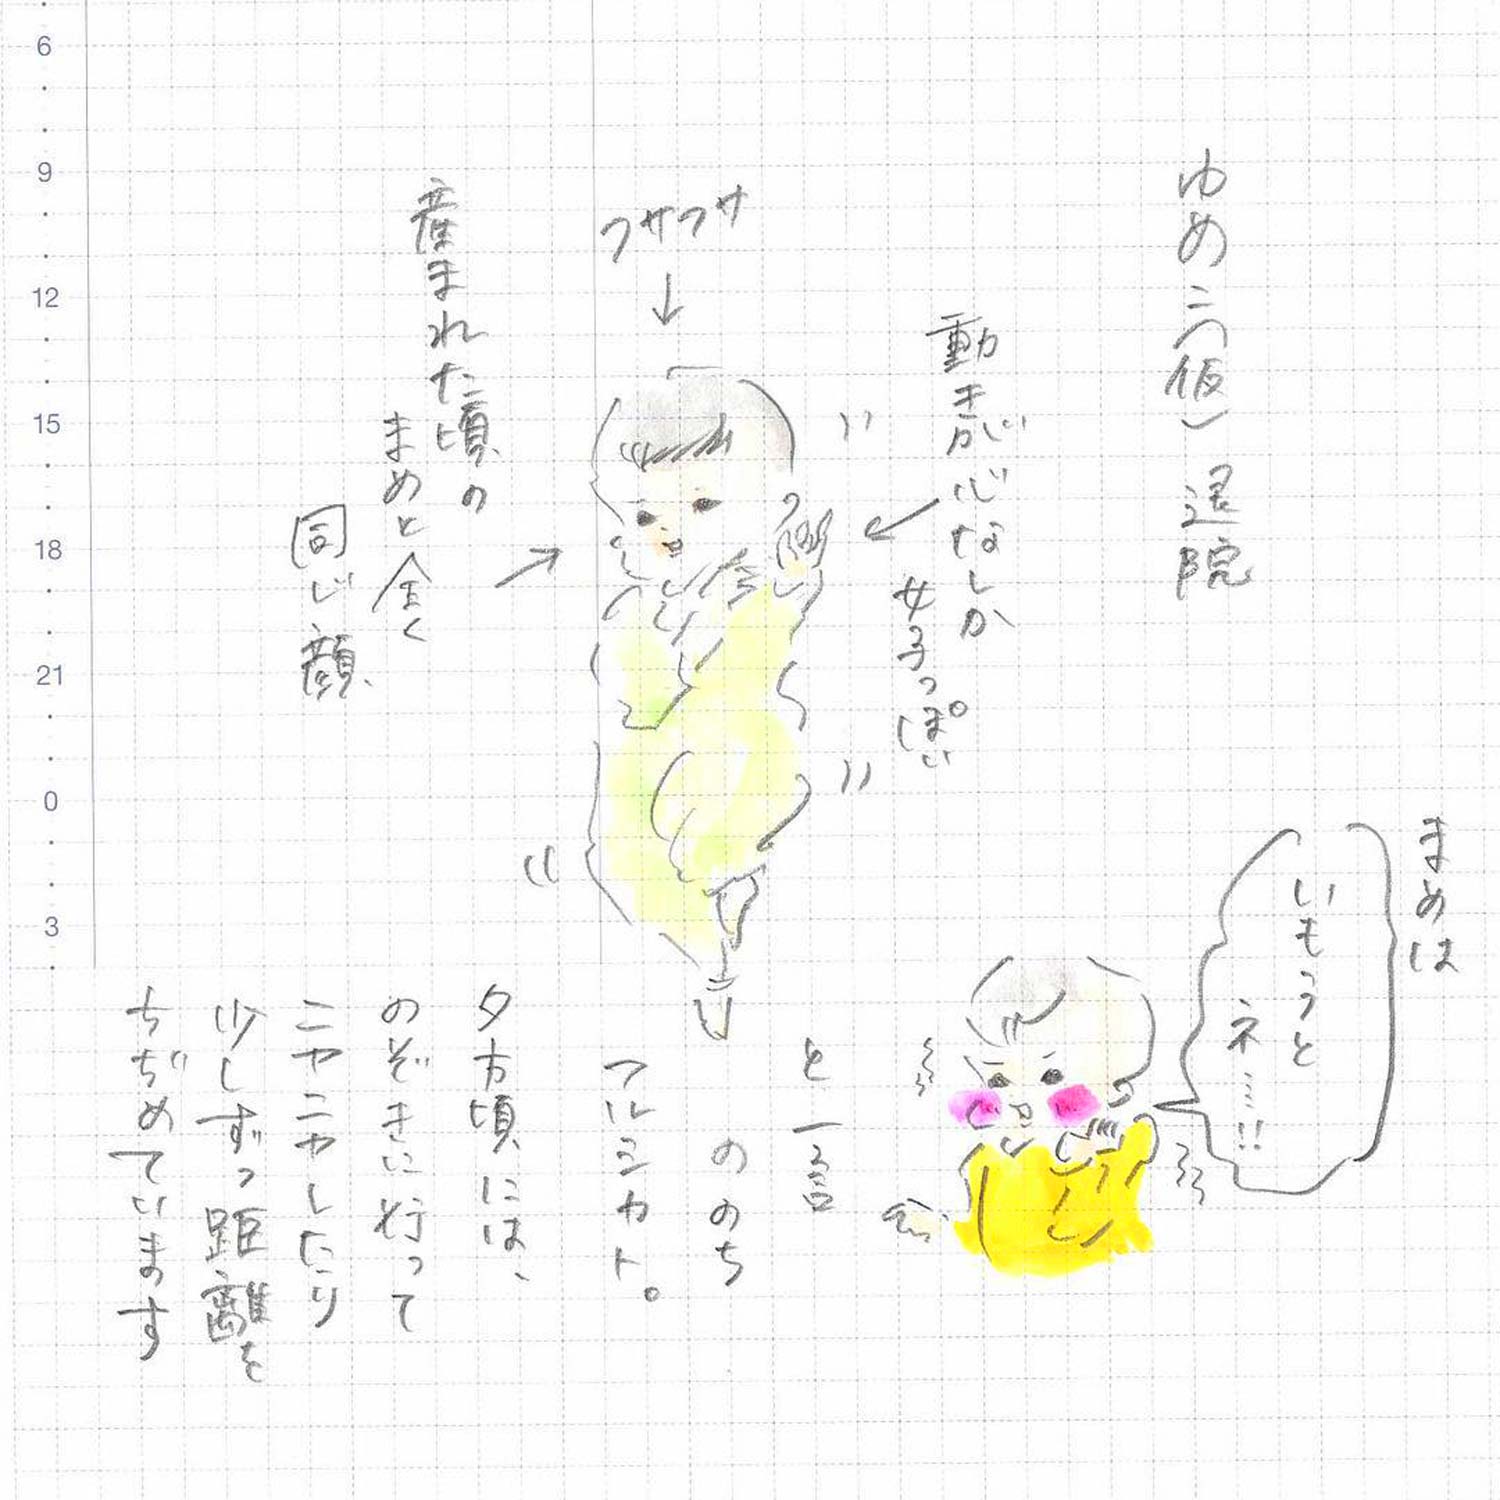 ゆめこ(仮)退院
動きが心なしか
女子っぽい
フサフサ
産まれた頃の
まめと全く
同じ顔
まめは
いもうと
ネ…!!
と一言
ののち
フルシカト。
夕方頃には、
のぞきに行って
ニヤニヤしたり
少しずつ距離を
ちぢめています
6
9
12
15
18
21
0
3